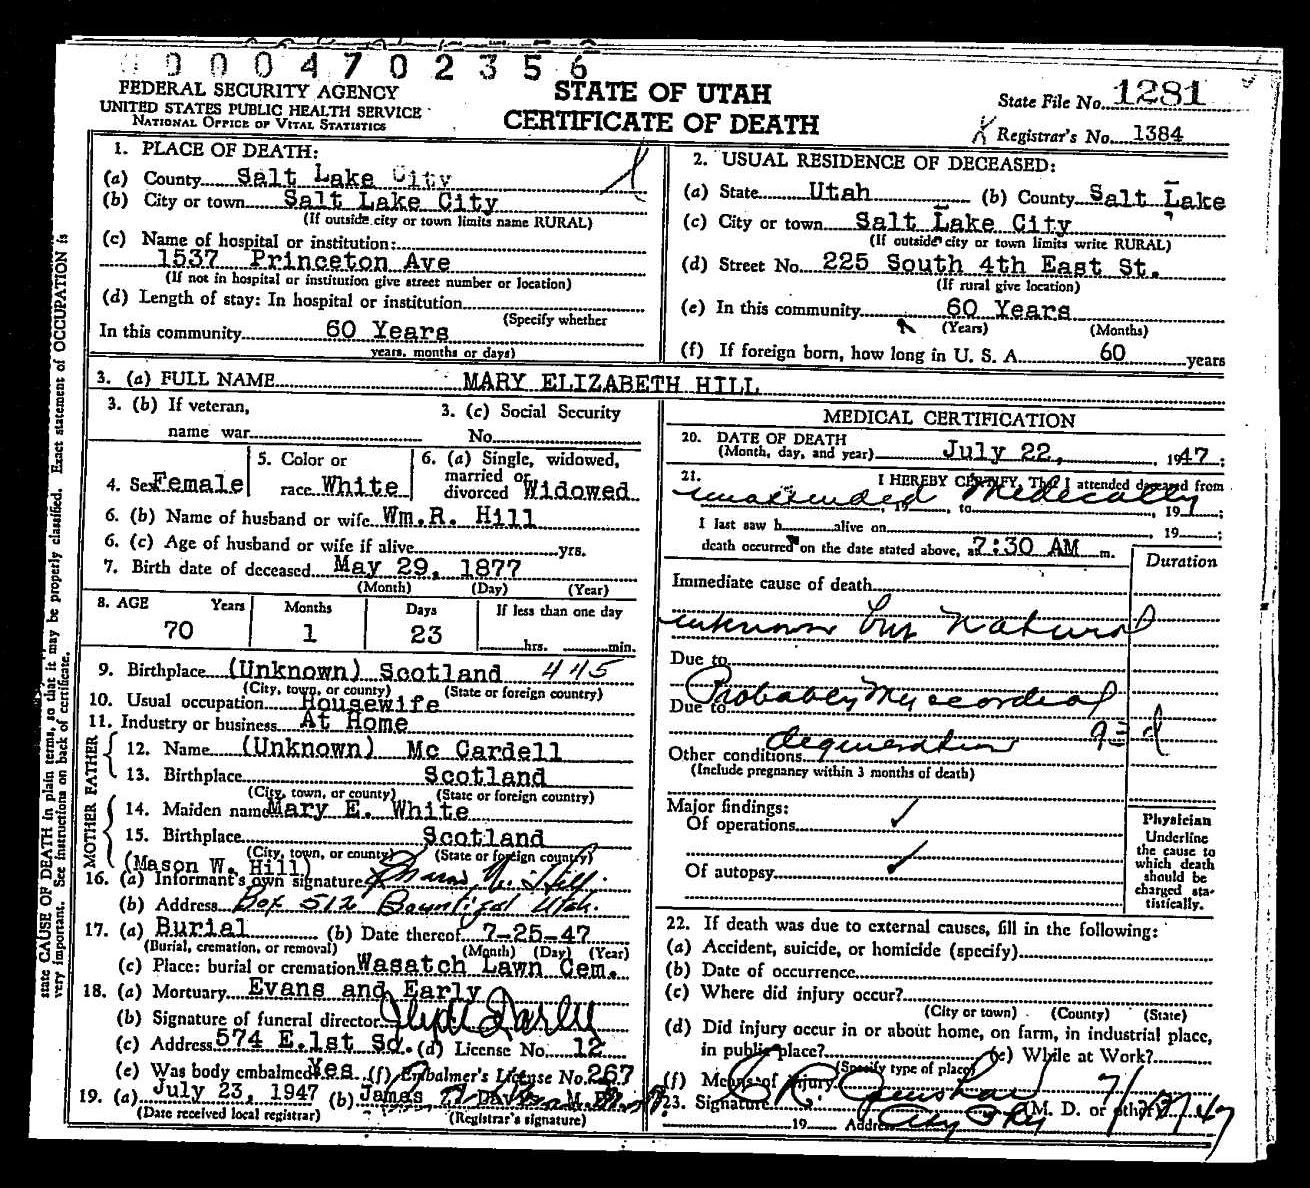 0 0 0 0 4 7 0 2 3 5 6
FEDERAL SECURITY AGENCY
UNITED STATES PUBLIC HEALTH SERVICE
NATIONAL OFFICE OF VITAL STATISTICS
STATE OF UTAH
CERTIFICATE OF DEATH
State File No. 1281
X Registrar's No. 1384
state CAUSE OF DEATH in plain terms, so that it may be properly classified. Exact statement of OCCUPATION is
very important. See instructions on back of certificate.
1. PLACE OF DEATH:
(a) County Salt Lake City
(b) City or town Salt Lake City
(If outside city or town limits name RURAL)
(c) Name of hospital or institution:
1537 Princeton Ave
(If not in hospital or institution give street number or location)
(d) Length of stay: In hospital or institution
(Specify whether
In this community 60 Years
years, months or days)
2. USUAL RESIDENCE OF DECEASED:
(a) State Utah (b) County Salt Lake
(c) City or town Salt Lake City
(If outside city or town limits write RURAL)
(d) Street No. 225 South 4th East St.
(If rural give location)
(e) In this community 60 Years
(Years) (Months)
(f) If foreign born, how long in U. S. A. 60 years
3. (a) FULL NAME MARY ELIZABETH HILL
3. (b) If veteran,
name war
3. (c) Social Security
No.
4. Sex Female
5. Color or
race White
6. (a) Single, widowed,
married or
divorced Widowed
6. (b) Name of husband or wife Wm.R. Hill
6. (c) Age of husband or wife if alive yrs.
7. Birth date of deceased May 29, 1877
(Month) (Day) (Year)
8. AGE Years Months Days If less than one day
70 1 23 hrs. min.
9. Birthplace (Unknown) Scotland 445
(City, town, or county) (State or foreign country)
10. Usual occupation Housewife
11. Industry or business At Home
FATHER
12. Name (Unknown) Mc Cardell
13. Birthplace Scotland
(City, town, or county) (State or foreign country)
MOTHER
14. Maiden name Mary E. White
15. Birthplace Scotland
(City, town, or county) (State or foreign country)
(Mason W. Hill)
16. (a) Informant's own signature Mason W. Hill
(b) Address Box 512 Bountiful Utah.
17. (a) Burial (b) Date thereof 7-25-47
(Burial, cremation, or removal) (Month) (Day) (Year)
(c) Place: burial or cremation Wasatch Lawn Cem.
18. (a) Mortuary Evans and Early
(b) Signature of funeral director
(c) Address 574 E.1st So. (d) License No. 12
(e) Was body embalmed Yes (f) Embalmer's License No. 267
19. (a) July 23, 1947 (b) James
(Date received local registrar) (Registrar's signature)
MEDICAL CERTIFICATION
20. DATE OF DEATH
(Month, day, and year) July 22, 1947;
21. I HEREBY CERTIFY, That I attended deceased from
unattended Medically
, 19 , to , 19 ;
I last saw h alive on , 19 ;
death occurred on the date stated above, at 7:30 AM m.
Duration
Immediate cause of death
unknown but Natural
Due to
Probably Myocordial
Due to
degeneration 93 d
Other conditions
(Include pregnancy within 3 months of death)
Major findings:
Of operations ✓
Of autopsy ✓
Physician
Underline
the cause to
which death
should be
charged sta-
tistically.
22. If death was due to external causes, fill in the following:
(a) Accident, suicide, or homicide (specify)
(b) Date of occurrence
(c) Where did injury occur?
(City or town) (County) (State)
(d) Did injury occur in or about home, on farm, in industrial place,
in public place? (e) While at Work?
(Specify type of place)
(f) Means of injury
23. Signature (M. D. or other)
19 Address